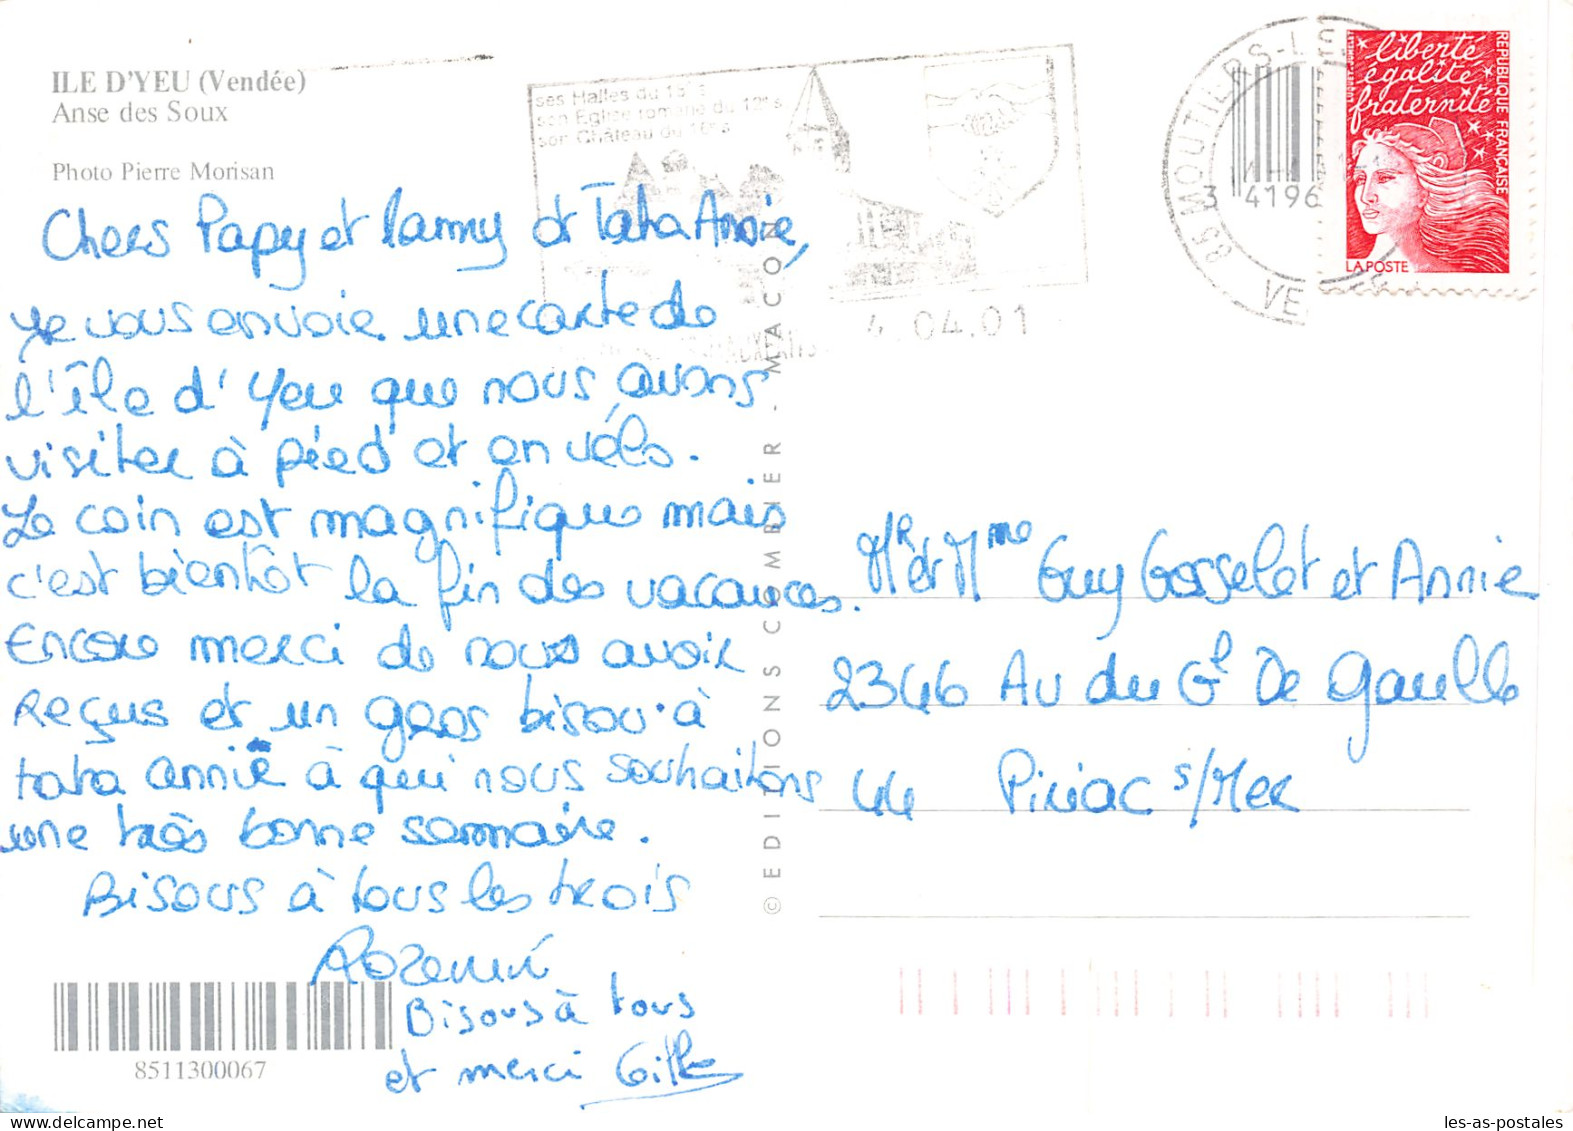 ILE D'YEU (Vendée)
Anse des Soux
Photo Pierre Morisan
ses Halles du 15e s
son Eglise romane du 12e s
son Château du 16e s
4.04.01
85 MOUTIERS-LES
VE
3 4196
liberté
égalité
fraternité
REPUBLIQUE FRANÇAISE
LA POSTE
Chers Papy et Mamy et Tata Annie,
Je vous envoie une carte de
l'île d'Yeu que nous avons
visiter à pied et en vélo.
Le coin est magnifique mais
c'est bientôt la fin des vacances.
Encore merci de nous avoir
reçus et un gros bisou à
tata annie à qui nous souhaitons
une très bonne semaine.
Bisous à tous les trois
Rozenn
Bisous à tous
et merci Gilles
Mr et Mme Guy Gosselet et Annie
2346 Av du Gl De Gaulle
44 Piriac s/Mer
© EDITIONS COMBIER - MACON
8511300067
les-as-postales